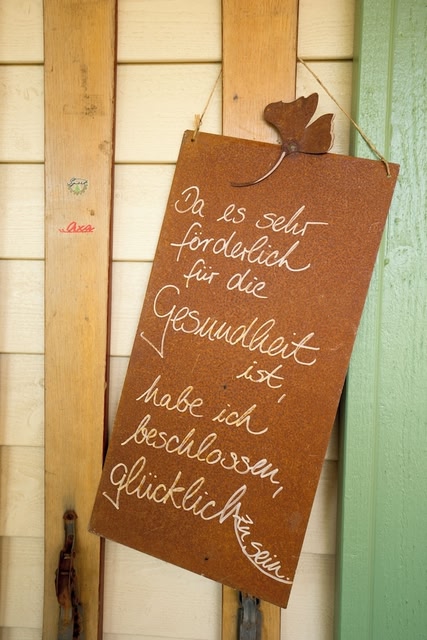 Da es sehr
förderlich
für die
Gesundheit
ist,
habe ich
beschlossen,
glücklich zu sein.